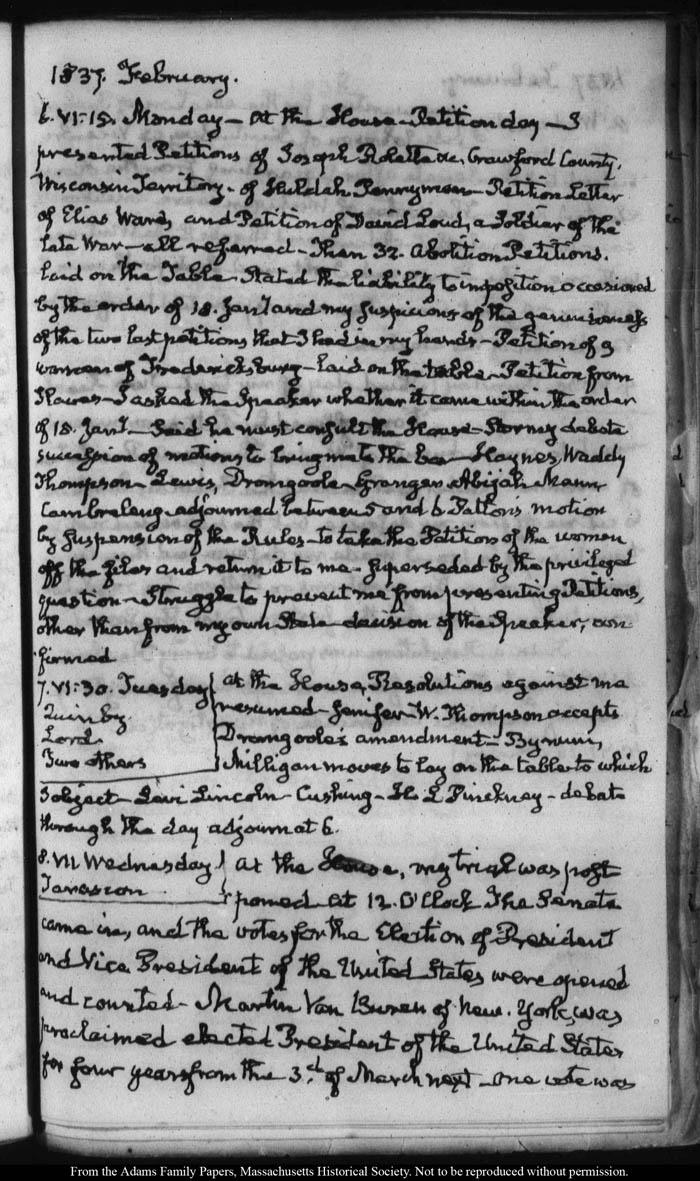 1837. February.
6. VI:15. Monday — At the House — Petition day — I
presented Petitions of Joseph Rolette &c. Crawford County,
Wisconsin Territory — of Huldah Pennyman — Petition Letter
of Elias Ward, and Petition of David Loud, a Soldier of the
late War — all referred — Then 32. Abolition Petitions.
laid on the Table. Stated the liability to imposition occasioned
by the order of 18. Jany and my suspicions of the genuineness
of the two last petitions that I had in my hands — Petition of 9
women of Fredericksburg — laid on the table — Petition from
Slaves — I asked the Speaker whether it came within the order
of 18. Jany. — Said he must consult the House — Stormy debate
succession of motions to bring me to the bar — Haynes, Waddy
Thompson — Lewis, Dromgoole — Granger — Abijah Mann,
Cambreleng — adjourned between 5 and 6 Patton's motion
by suspension of the Rules — to take the Petition of the women
off the files and return it to me — superseded by the privileged
question — Struggle to prevent me from presenting Petitions,
other than from my own State — decision of the Speaker, con
firmed
7. VI:30. Tuesday
Quinby
Lord.
Two others
At the House, Resolutions against me
resumed — Jenifer — W. Thompson accepts
Dromgoole's amendment — Bynum,
Milligan moves to lay on the table — to which
I object — Levi Lincoln — Cushing — H. L Pinckney — debate
through the day adjourn at 6.
8. VII Wednesday
At the House, my trial was post
poned at 12. O'Clock The Senate
came in, and the votes for the Election of President
and Vice President of the United States were opened
and counted — Martin Van Buren of New. York, was
proclaimed elected President of the United States
for four years from the 3.d of March next — one vote was
From the Adams Family Papers, Massachusetts Historical Society. Not to be reproduced without permission.